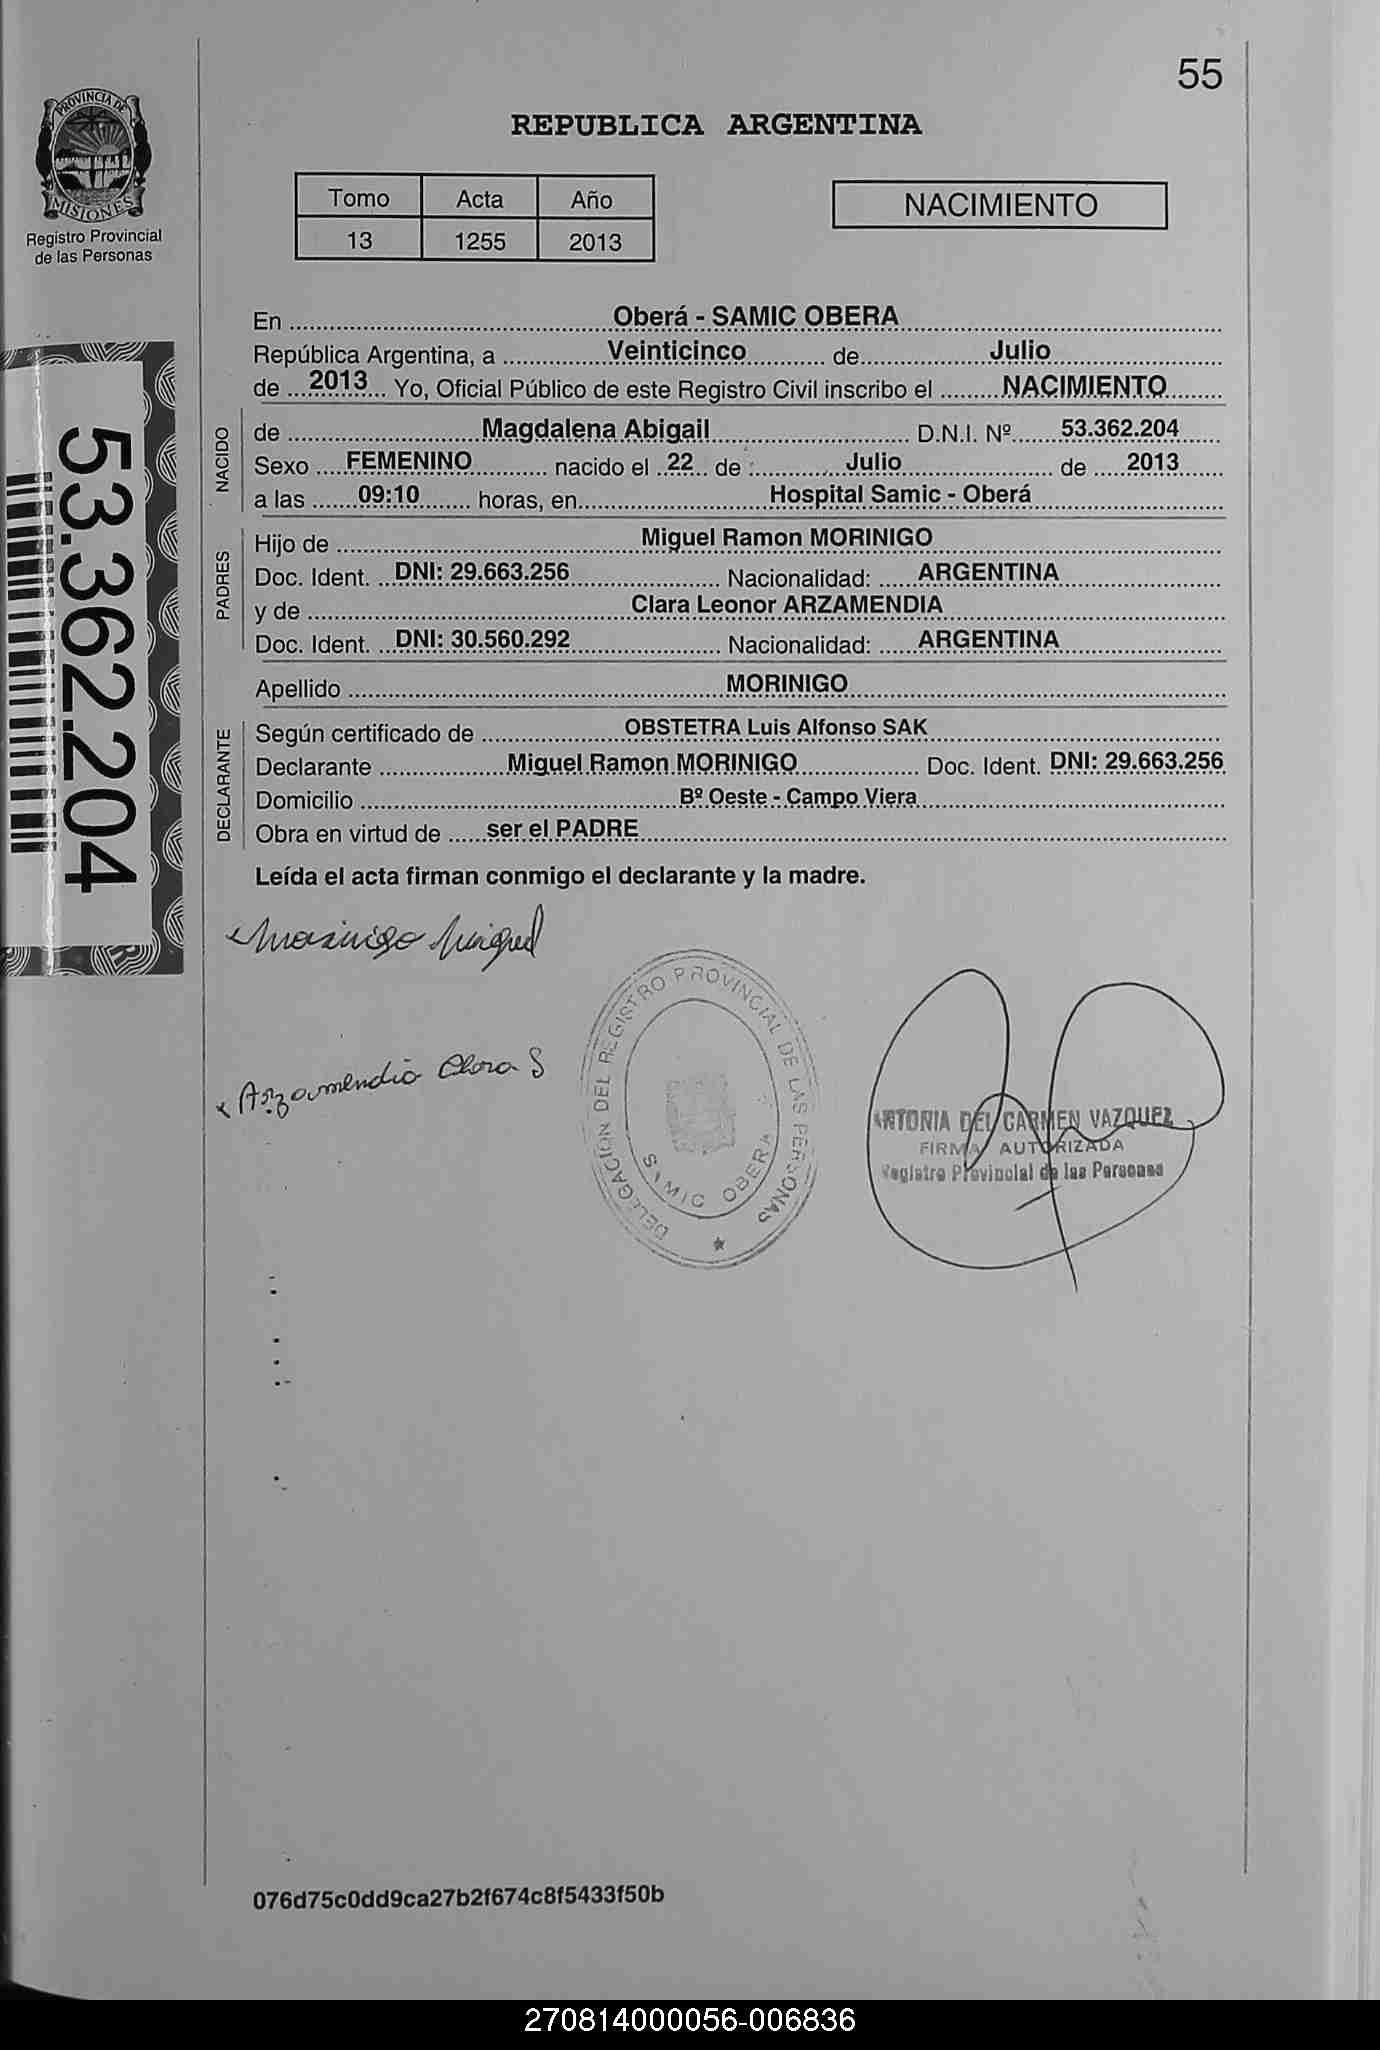 55
PROVINCIA DE
MISIONES
Registro Provincial
de las Personas
REPUBLICA ARGENTINA
Tomo Acta Año
13 1255 2013
NACIMIENTO
53.362.204
En Oberá - SAMIC OBERA
República Argentina, a Veinticinco de Julio
de 2013 Yo, Oficial Público de este Registro Civil inscribo el NACIMIENTO
NACIDO
de Magdalena Abigail D.N.I. Nº 53.362.204
Sexo FEMENINO nacido el 22 de Julio de 2013
a las 09:10 horas, en Hospital Samic - Oberá
PADRES
Hijo de Miguel Ramon MORINIGO
Doc. Ident. DNI: 29.663.256 Nacionalidad: ARGENTINA
y de Clara Leonor ARZAMENDIA
Doc. Ident. DNI: 30.560.292 Nacionalidad: ARGENTINA
Apellido MORINIGO
DECLARANTE
Según certificado de OBSTETRA Luis Alfonso SAK
Declarante Miguel Ramon MORINIGO Doc. Ident. DNI: 29.663.256
Domicilio Bº Oeste - Campo Viera
Obra en virtud de ser el PADRE
Leída el acta firman conmigo el declarante y la madre.
Morinigo Miguel
Arzamendia Clara
DELEGACION DEL REGISTRO PROVINCIAL DE LAS PERSONAS
SAMIC OBERA
DEL CARMEN VAZQUEZ
FIRMA AUTORIZADA
Registro Provincial de las Personas
076d75c0dd9ca27b2f674c8f5433f50b
270814000056-006836